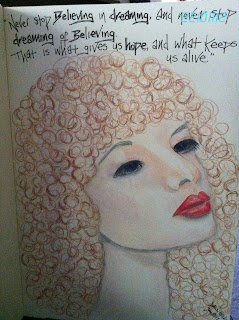 "Never stop Believing in dreaming, And never stop
dreaming of Believing.
That is what gives us hope, and what keeps
us alive."